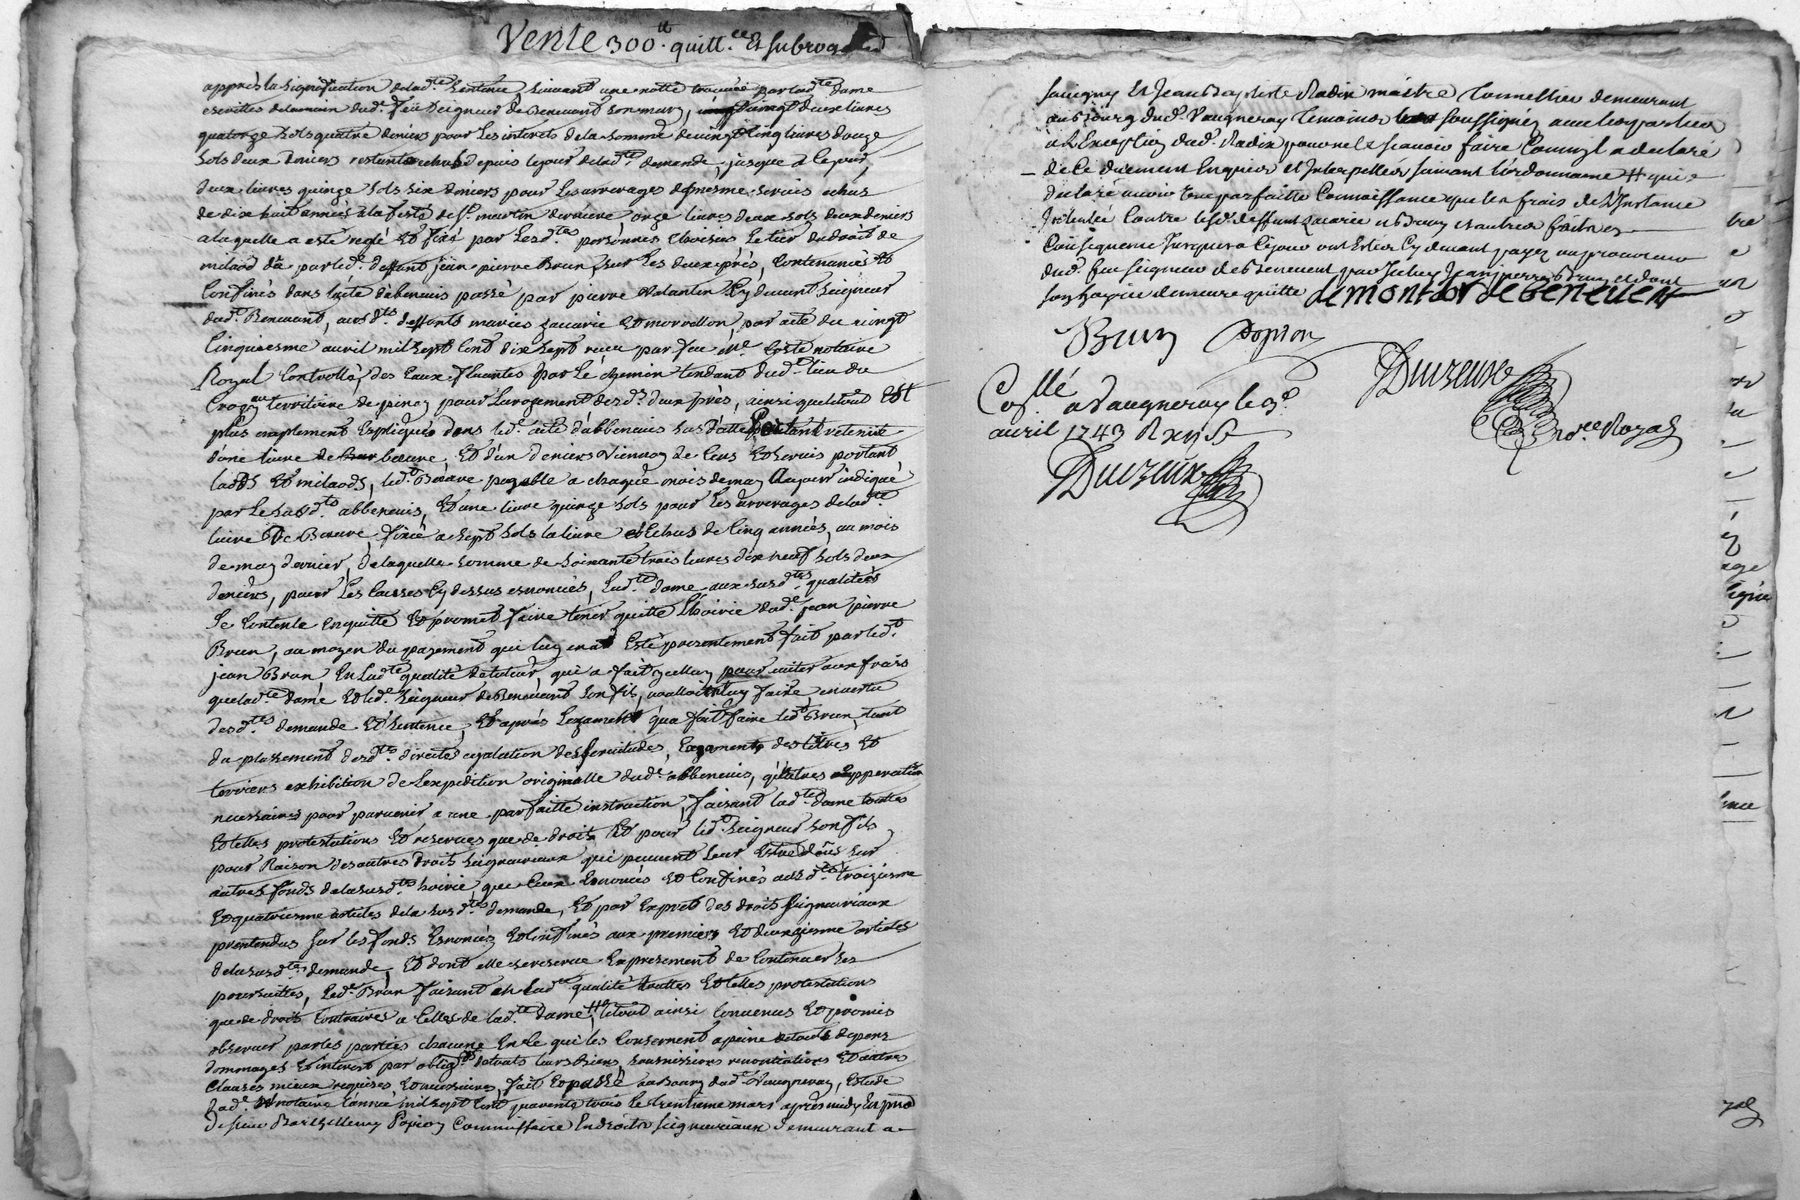 Vente 300.tt quitt.ce Et subrog
apprès la signification de lad.te sentence, suivant une notte trouvée par lad.te dame
escritte de la main dud. feu seigneur de Benevant son mary, vingt deux livres
quatorze sols quatre deniers pour les interets de la somme de vingt cinq livres douze
sols deux deniers restante echus depuis le jour de lad.te demande, jusque à ce jour,
deux livres quinze sols six deniers pour les arrerages de mesme servis echus
de dix huit années à la feste de St. martin derniere onze livres deux sols deux deniers
a laquelle a esté reglé Et fixé par lesd.tes personnes choisies le tier du droit de
milaod dû par led. deffunt jean pierre Brun, sur les deux prés, contenancés Et
confinés dans l'acte d'abenevis passé par pierre Valantin cy devant seigneur
dud. Benevant, aux d.ts deffunts mariés zacarie Et morvollon, par acte du vingt
cinquiesme avril mil sept cent dix sept receu par feu Me. Coste notaire
Royal Controllé, des Eaux fluantes par le chemin tendant dud. lieu du
Crozy au territoire de pinay pour l'arrozement desd.s deux prés, ainsi que le tout Est
plus emplement Expliqué dans led. acte d'abbenevis susd'atté Portant
d'une livre de beurre, Et d'un deniers Viennoy de cens Et servis portant
laods Et milaods, led.t Beurre payable a chaque mois de may Au jour indiqué
par le susd.t abbenevis, Et une livre quinze sols pour les arrerages de lad.te
livre de Beurre, fixée a sept sols la livre Et Echus de cinq années, au mois
de may dernier, de laquelle somme de soixante trois livres dix neuf sols deux
deniers, pour les causses cy dessus enoncées, lad.te dame aux susd.tes qualités
se contente en quitte Et promet faire tenir quitte l'hoirie dud.t jean pierre
Brun, au moyen du payement qui luy en a Esté presentement fait par led.t
jean Brun En lad.te qualité de tuteur, qui a fait jcelluy pour eviter aux frais
que lad.te dame Et led. seigneur de Benevant son fils, alloint luy faire en vertu
desd.tes demande Et sentence, Et après l'exament qu'a fait faire led.t Brun, tant
du plassement desd.tes directes egalation des servitudes, Exgaments des titres Et
terriers exhibition de l'expedition originalle dud.t abbenevis, qu'autres opperation
necessaires pour parvenir a une parfaitte instruction, faisant lad.te dame toutes
Et telles protestations Et reserves que de droit Et pour led.t seigneur son fils
pour Raison des autres droits seigneuriaux qui peuvent leur Estre dûs sur
autres fonds de la susd.te hoirie, que ceux Enoncés Et Confinés aux d.ts troizieme
Et quatriesme articles de la susd.te demande, Et par Exprets des droits seigneuriaux
pretendus sur les fonds Enoncés Et confinés aux premiers Et deuxzieme articles
de la susd.te demande, Et dont elle se reserve Expressement de continuer ses
poursuittes, led.t Brun faisant en lad.te qualité touttes Et telles protestations
que de droit contraires a celles de lad.te dame # le tout ainsi convenus Et promis
observer par les parties chacune En ce qui les concernent a peine de tous depens
dommages Et interest par oblig.on de touts leurs biens, soumissions renonciations Et autres
clauses mieux requises Et necessaires, fait Et passé au Bourg dud.t Vaugneray, Estude
dud.t notaire l'année mil sept cent quarente trois le trentieme mars après midy En presence
de sieur Barthellemy Popion Commissaire En droits seigneuriaux demeurant a
savigny Et Jean Baptiste Radix maitre Tonnellier demeurant
au Bourg dud. Vaugneray temoins soussignez avec les parties
à l'Exception dud. Radix pour ne le sçavoir faire comm'il a declaré
de ce duement Enquis et Interpellez suivant l'ordonnance # qui a
declaré avoir une parfaitte Connoissance que les frais de l'Instance
Intentée Contre lesd. deffunt zacarie et Brun et autres faits en
Consequence Jusques a ce jour ont Estés cy devant payez au procureur
dud. feu seigneur de Benevent par Jceluy Jean pierre Brun, et dont
son hoirie demeure quitte demontdor de benevent
Brun Popion
Duvzeux
No.re Royal
Co.llé a Vaugneray le 3.e
avril 1743 R xij s
Duvzeux